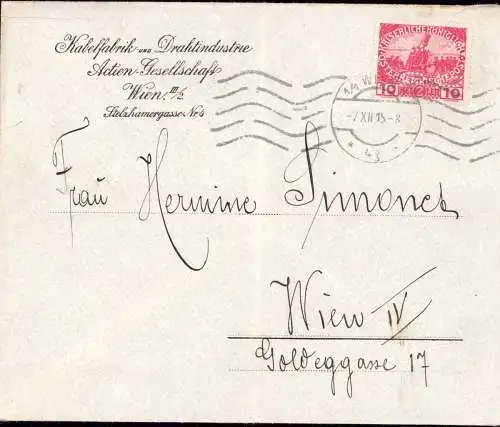 Kabelfabrik und Drahtindustrie
Actien-Gesellschaft
Wien, III/2
Stelzhamergasse Nr 4
KAISERLICHE KÖNIGL.
10 HELLER 10
1/1 W
-7 XII 15-8
* 43 *
Frau Hermine Simonet
Wien IV
Goldeggasse 17